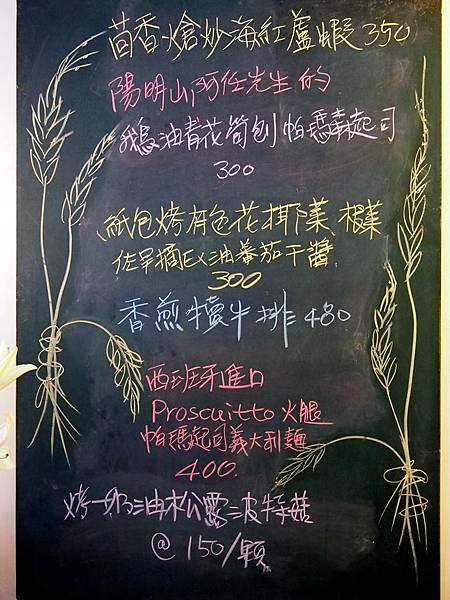 茴香熗炒海紅蘆蝦 350
陽明山阿任先生的
鵝油青花筍刨帕瑪森起司
300
紙包烤有色花椰菜、椴葉
佐早摘EX油蕃茄干醬
300
香煎犢牛排 480
西班牙進口
Proscuitto 火腿
帕瑪起司義大利麵
400.
烤奶油松露波特菇
@ 150/顆